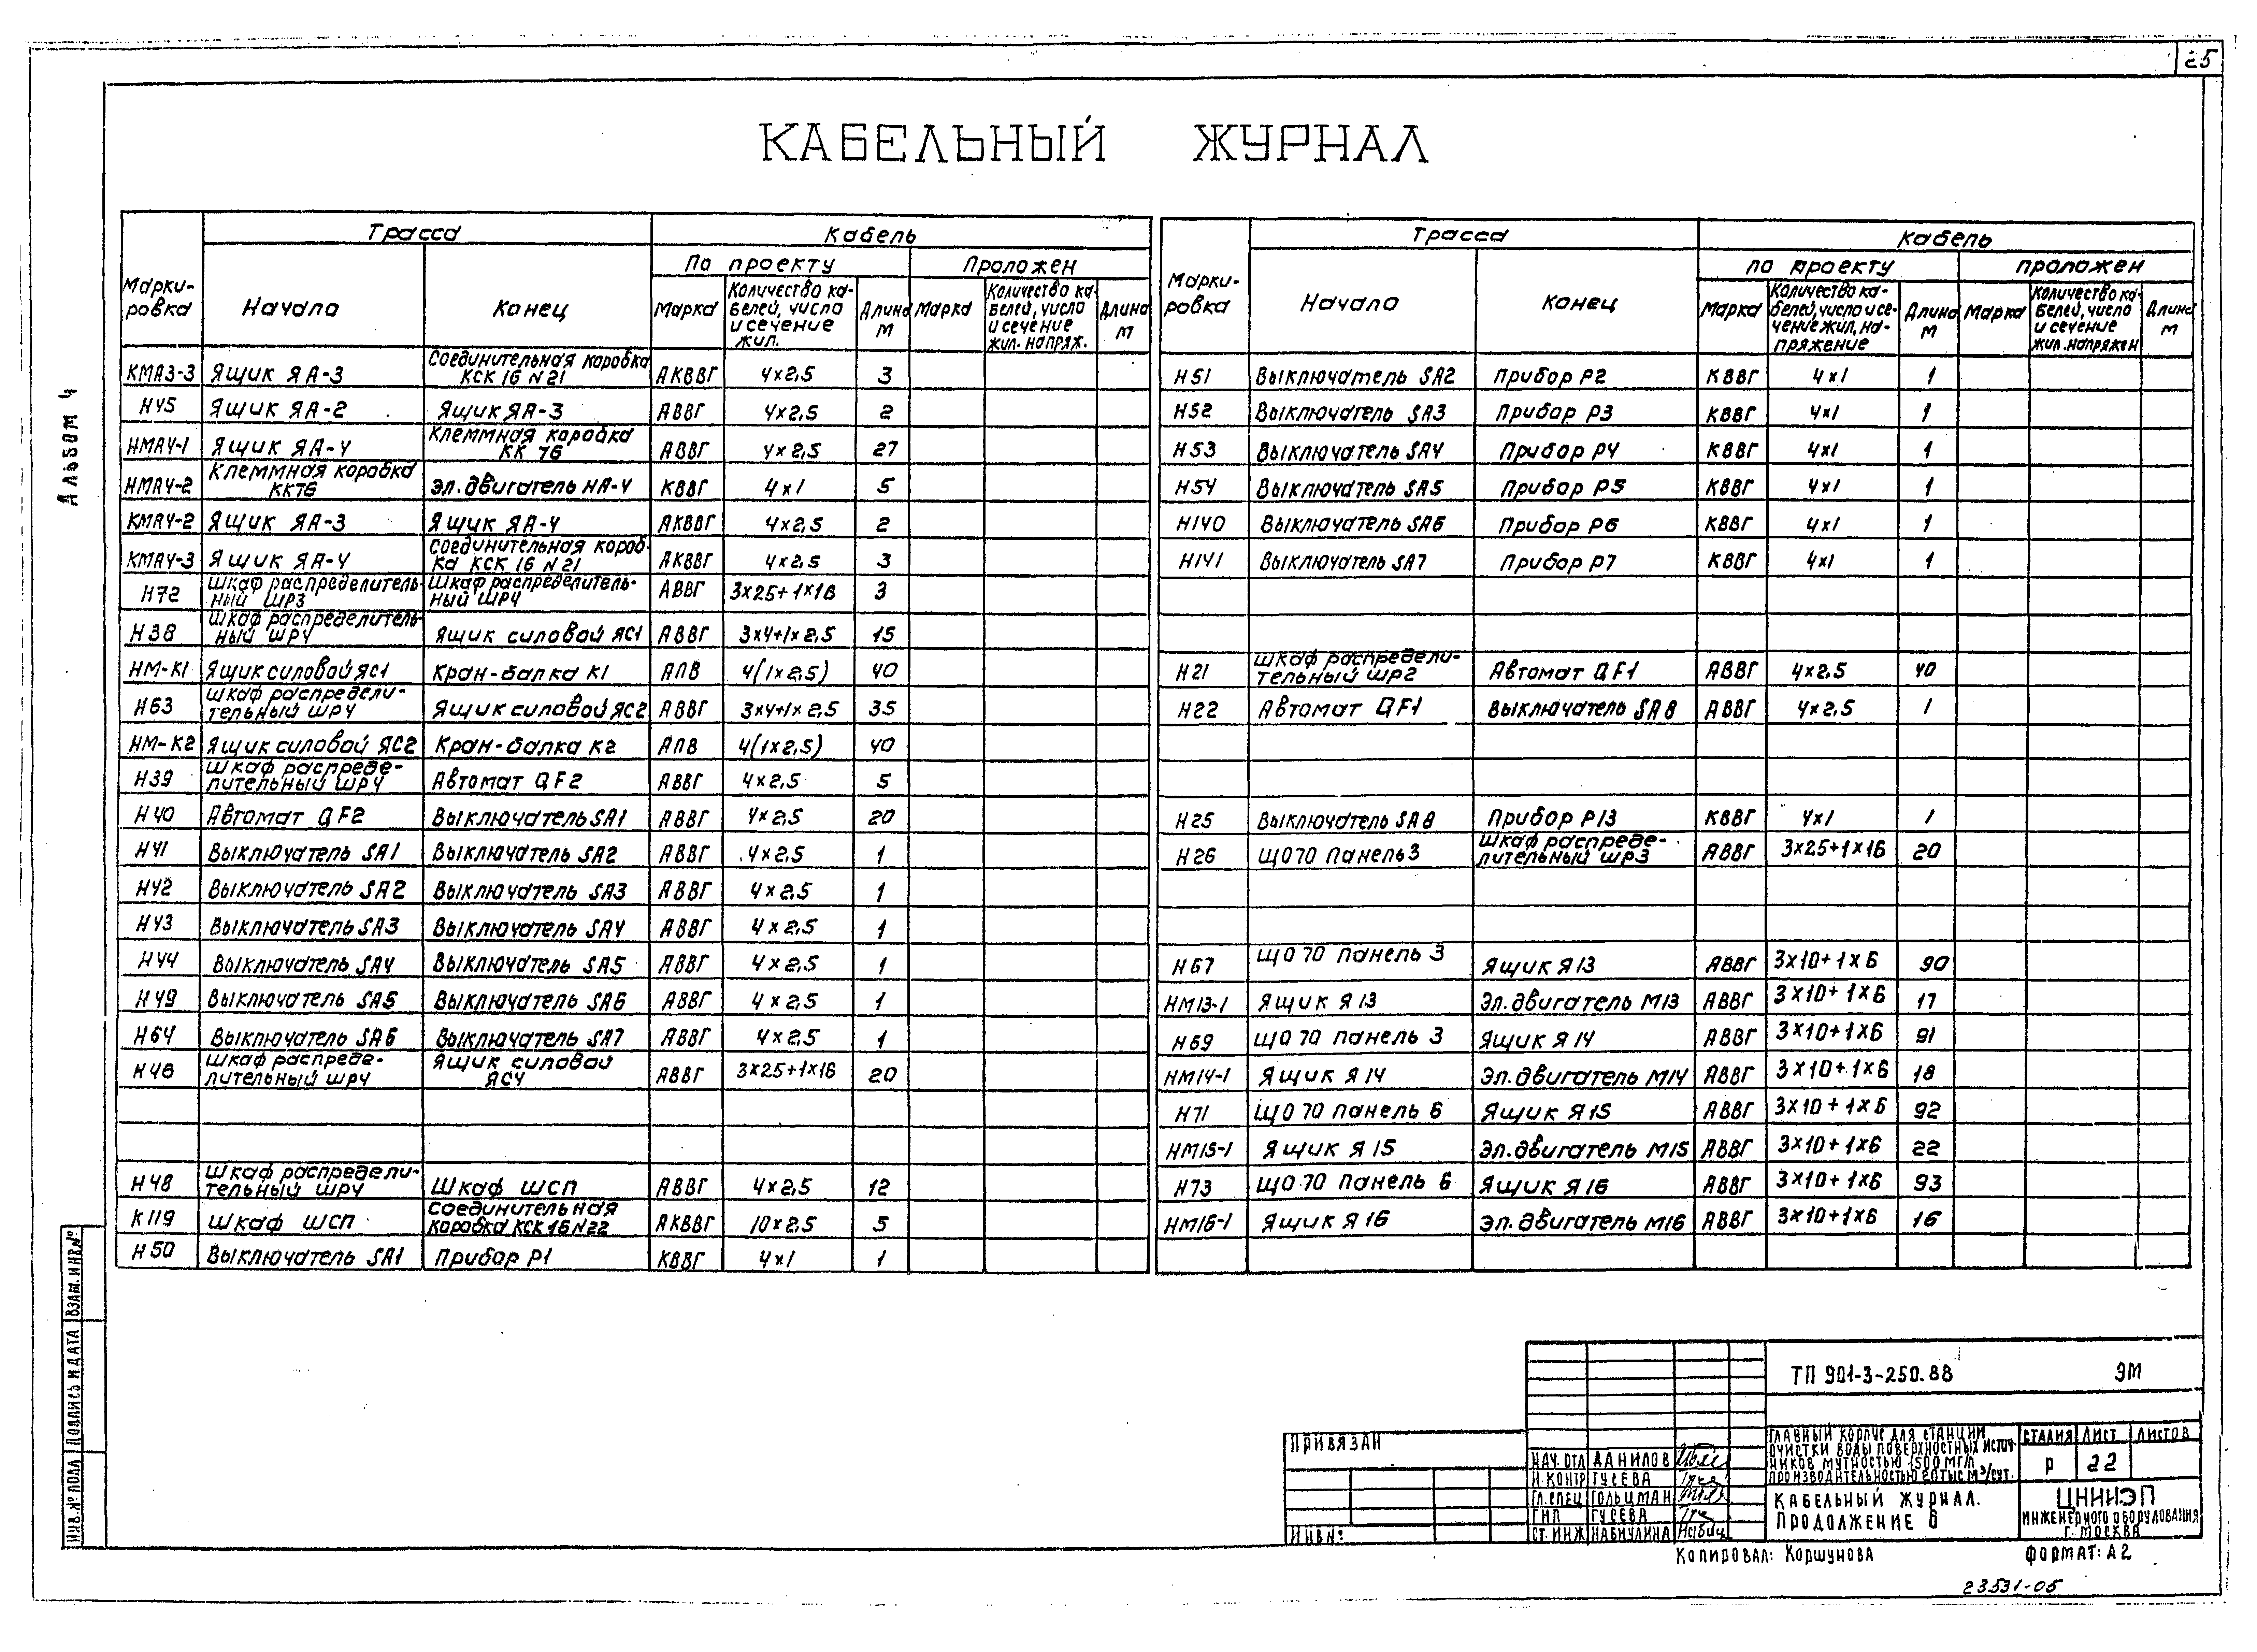 25
КАБЕЛЬНЫЙ ЖУРНАЛ
Альбом 4
Марки-
ровка
Трасса
Кабель
Начало
Конец
По проекту
Проложен
Марка
Количество ка-
белей, число
и сечение
жил.
Длина
м
Марка
Количество ка-
белей, число
и сечение
жил. напряж.
Длина
м
КМА3-3 Ящик ЯА-3 Соединительная коробка КСК 16 N21 АКВВГ 4х2,5 3
Н45 Ящик ЯА-2 Ящик ЯА-3 АВВГ 4х2,5 2
НМА4-1 Ящик ЯА-4 Клеммная коробка КК 76 АВВГ 4х2,5 27
НМА4-2 Клеммная коробка КК76 Эл. двигатель НА-4 КВВГ 4х1 5
КМА4-2 Ящик ЯА-3 Ящик ЯА-4 АКВВГ 4х2,5 2
КМА4-3 Ящик ЯА-4 Соединительная короб-ка КСК 16 N21 АКВВГ 4х2,5 3
Н72 Шкаф распределитель-ный ШР3 Шкаф распределитель-ный ШР4 АВВГ 3х25+1х16 3
Н38 Шкаф распределитель-ный ШР4 Ящик силовой ЯС1 АВВГ 3х4+1х2,5 15
НМ-К1 Ящик силовой ЯС1 Кран-балка К1 АПВ 4(1х2,5) 40
Н63 Шкаф распредели-тельный ШР4 Ящик силовой ЯС2 АВВГ 3х4+1х2,5 35
НМ-К2 Ящик силовой ЯС2 Кран-балка К2 АПВ 4(1х2,5) 40
Н39 Шкаф распреде-лительный ШР4 Автомат QF2 АВВГ 4х2,5 5
Н40 Автомат QF2 Выключатель SA1 АВВГ 4х2,5 20
Н41 Выключатель SA1 Выключатель SA2 АВВГ 4х2,5 1
Н42 Выключатель SA2 Выключатель SA3 АВВГ 4х2,5 1
Н43 Выключатель SA3 Выключатель SA4 АВВГ 4х2,5 1
Н44 Выключатель SA4 Выключатель SA5 АВВГ 4х2,5 1
Н49 Выключатель SA5 Выключатель SA6 АВВГ 4х2,5 1
Н64 Выключатель SA6 Выключатель SA7 АВВГ 4х2,5 1
Н46 Шкаф распреде-лительный ШР4 Ящик силовой ЯС4 АВВГ 3х25+1х16 20
Н48 Шкаф распредели-тельный ШР4 Шкаф ШСП АВВГ 4х2,5 12
К119 Шкаф ШСП Соединительная коробка КСК 16 N22 АКВВГ 10х2,5 5
Н50 Выключатель SA1 Прибор Р1 КВВГ 4х1 1
Марки-
ровка
Трасса
Кабель
Начало
Конец
по проекту
проложен
Марка
Количество ка-
белей, число и се-
чение жил, на-
пряжение
Длина
м
Марка
Количество ка-
белей, число
и сечение
жил. напряжен
Длина
м
Н51 Выключатель SA2 Прибор Р2 КВВГ 4х1 1
Н52 Выключатель SA3 Прибор Р3 КВВГ 4х1 1
Н53 Выключатель SA4 Прибор Р4 КВВГ 4х1 1
Н54 Выключатель SA5 Прибор Р5 КВВГ 4х1 1
Н140 Выключатель SA6 Прибор Р6 КВВГ 4х1 1
Н141 Выключатель SA7 Прибор Р7 КВВГ 4х1 1
Н21 Шкаф распредели-тельный ШР2 Автомат QF1 АВВГ 4х2,5 40
Н22 Автомат QF1 Выключатель SA8 АВВГ 4х2,5 1
Н25 Выключатель SA8 Прибор Р13 КВВГ 4х1 1
Н26 ЩО70 панель 3 Шкаф распреде-лительный ШР3 АВВГ 3х25+1х16 20
Н67 ЩО 70 панель 3 Ящик Я13 АВВГ 3х10+1х6 90
НМ13-1 Ящик Я13 Эл. двигатель М13 АВВГ 3х10+1х6 17
Н69 ЩО 70 панель 3 Ящик Я14 АВВГ 3х10+1х6 91
НМ14-1 Ящик Я14 Эл. двигатель М14 АВВГ 3х10+1х6 18
Н71 ЩО 70 панель 6 Ящик Я15 АВВГ 3х10+1х6 92
НМ15-1 Ящик Я15 Эл. двигатель М15 АВВГ 3х10+1х6 22
Н73 ЩО 70 панель 6 Ящик Я16 АВВГ 3х10+1х6 93
НМ16-1 Ящик Я16 Эл. двигатель М16 АВВГ 3х10+1х6 16
ВЗАМ. ИНВ.№
ПОДПИСЬ И ДАТА
ИНВ.№ ПОДЛ
ПРИВЯЗАН
ИНВ №:
ТП 901-3-250.88 ЭМ
НАЧ. ОТД ДАНИЛОВ
Н. КОНТР ГУСЕВА
ГЛ. СПЕЦ ГОЛЬЦМАН
ГИП ГУСЕВА
СТ. ИНЖ НАБИУЛИНА
ГЛАВНЫЙ КОРПУС ДЛЯ СТАНЦИИ
ОЧИСТКИ ВОДЫ ПОВЕРХНОСТНЫХ ИСТОЧ-
НИКОВ МУТНОСТЬЮ 1500 МГ/Л
ПРОИЗВОДИТЕЛЬНОСТЬЮ 20 ТЫС М³/СУТ.
СТАДИЯ ЛИСТ ЛИСТОВ
Р 22
КАБЕЛЬНЫЙ ЖУРНАЛ.
ПРОДОЛЖЕНИЕ 6
ЦНИИЭП
ИНЖЕНЕРНОГО ОБОРУДОВАНИЯ
Г. МОСКВА
Копировал: Коршунова
ФОРМАТ: А2
23531-05